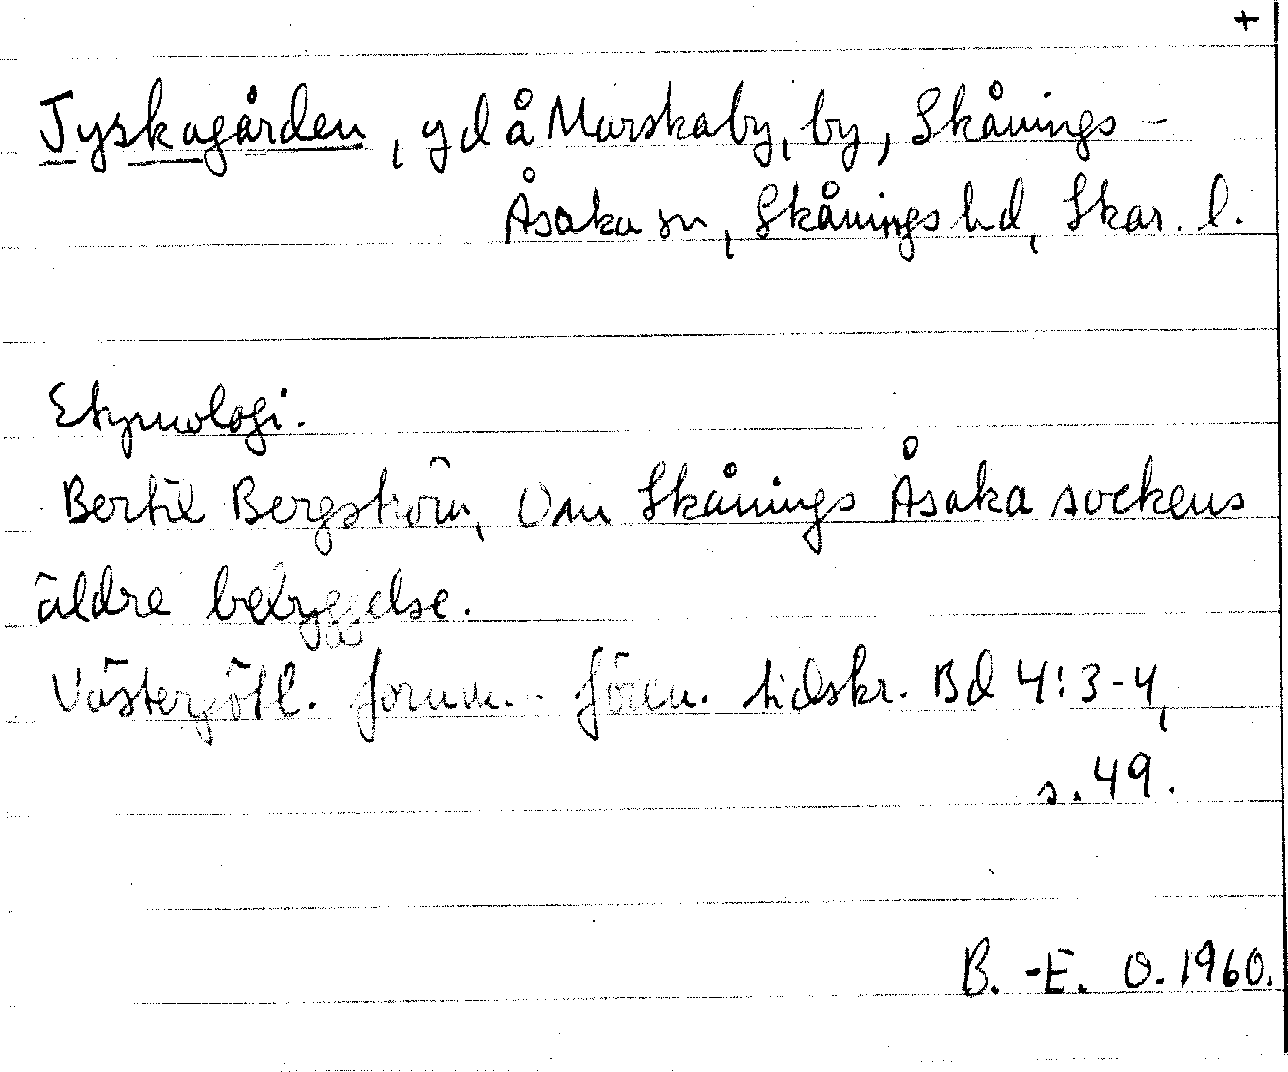 +
Tyskagården, yd å Marskaby, by, Skånings-
Åsaka sn, Skånings hd, Skar. l.
Etymologi.
Bertil Bergström, Om Skånings Åsaka sockens
äldre bebyggelse.
Västergötl. fornm. fören. tidskr. Bd 4:3-4,
s. 49.
B.-E. O. 1960.